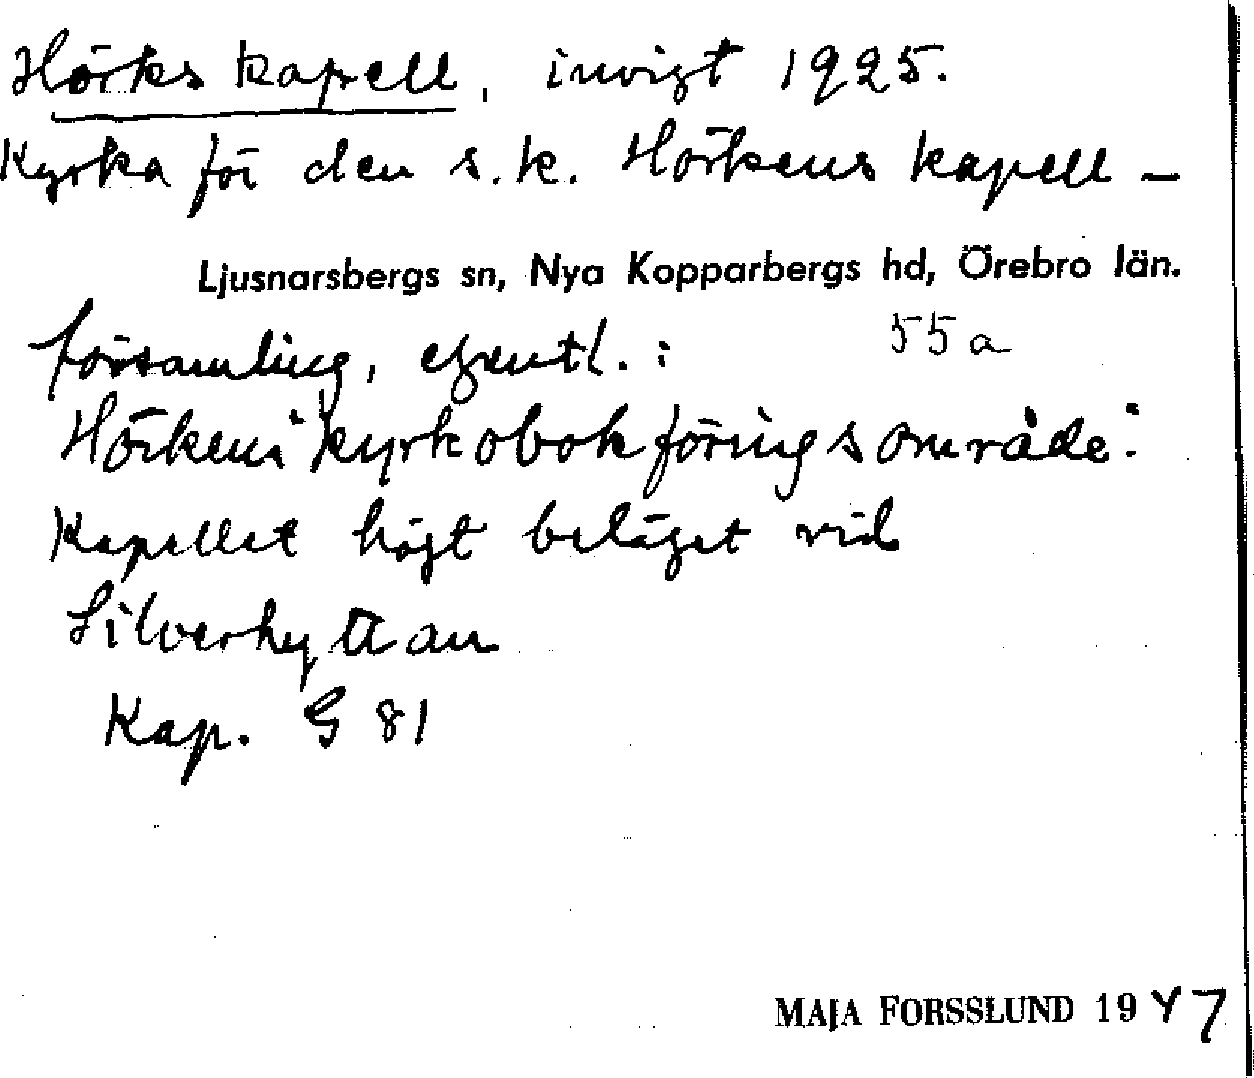 Hörks kapell, invigt 1925.
Kyrka för den s.k. Hörkens kapell-
Ljusnarsbergs sn, Nya Kopparbergs hd, Örebro län.
församling, egentl.:
55a
Hörkens "kyrkobokföringsområde".
Kapellet högt beläget vid
Silverhyttan
Kap. G 81
MAJA FORSSLUND 1947